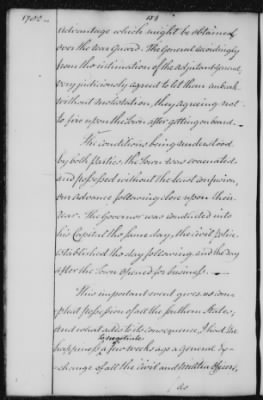 1782
advantage which might be obtained
over the rear Guard. The General accordingly
from the intimation of the Adjutant General,
very judiciously agreed to let them embark
without molestation, they agreeing not
to fire upon the Town after getting on board.
The conditions being understood
by both parties, the Town was evacuated
and possessed without the least confusion,
our advance following close upon their
rear. The Governor was conducted into
his Capital the same day, the civil
established the day following, and the day
after the Town opened for business.
This important event gives us com-
plete possession of all the southern States,
and what adds to its consequence, I had the
to negotiate
happiness a few weeks ago a General Ex-
change of all the Civil and Militia Officers,